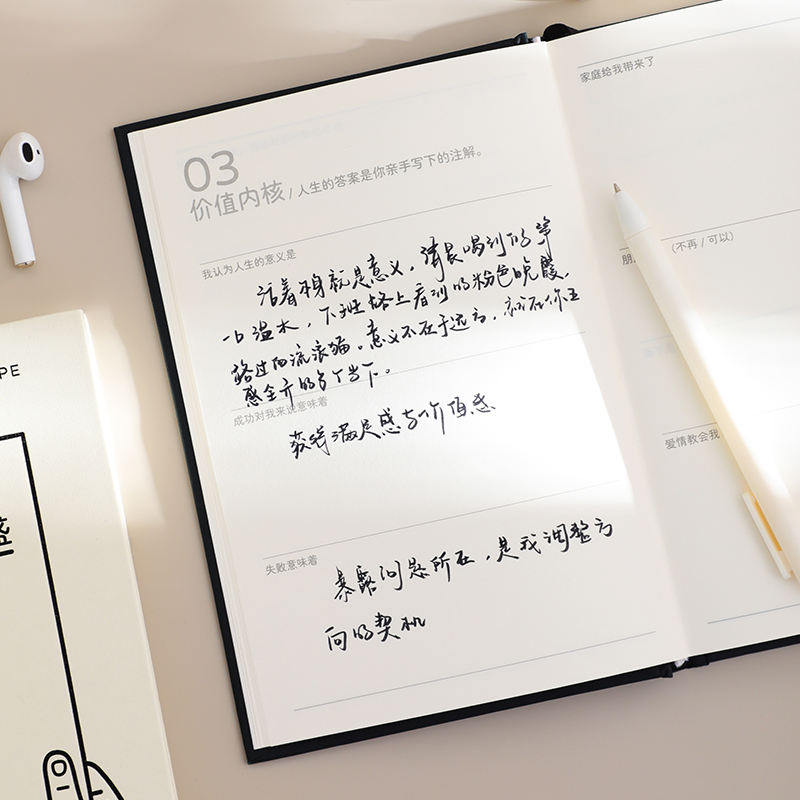 03
价值内核 / 人生的答案是你亲手写下的注解。
我认为人生的意义是
活着本身就是意义，清晨喝到的第
一口温水，下班路上看到的粉色晚霞，
路过的流浪猫。意义不在于远方，就在你五
感全开的每个当下。
成功对我来说意味着
获得满足感与价值感
失败意味着
暴露问题所在，是我调整方
向的契机
家庭给我带来了
朋
（不再 / 可以）
爱情教会我
PE